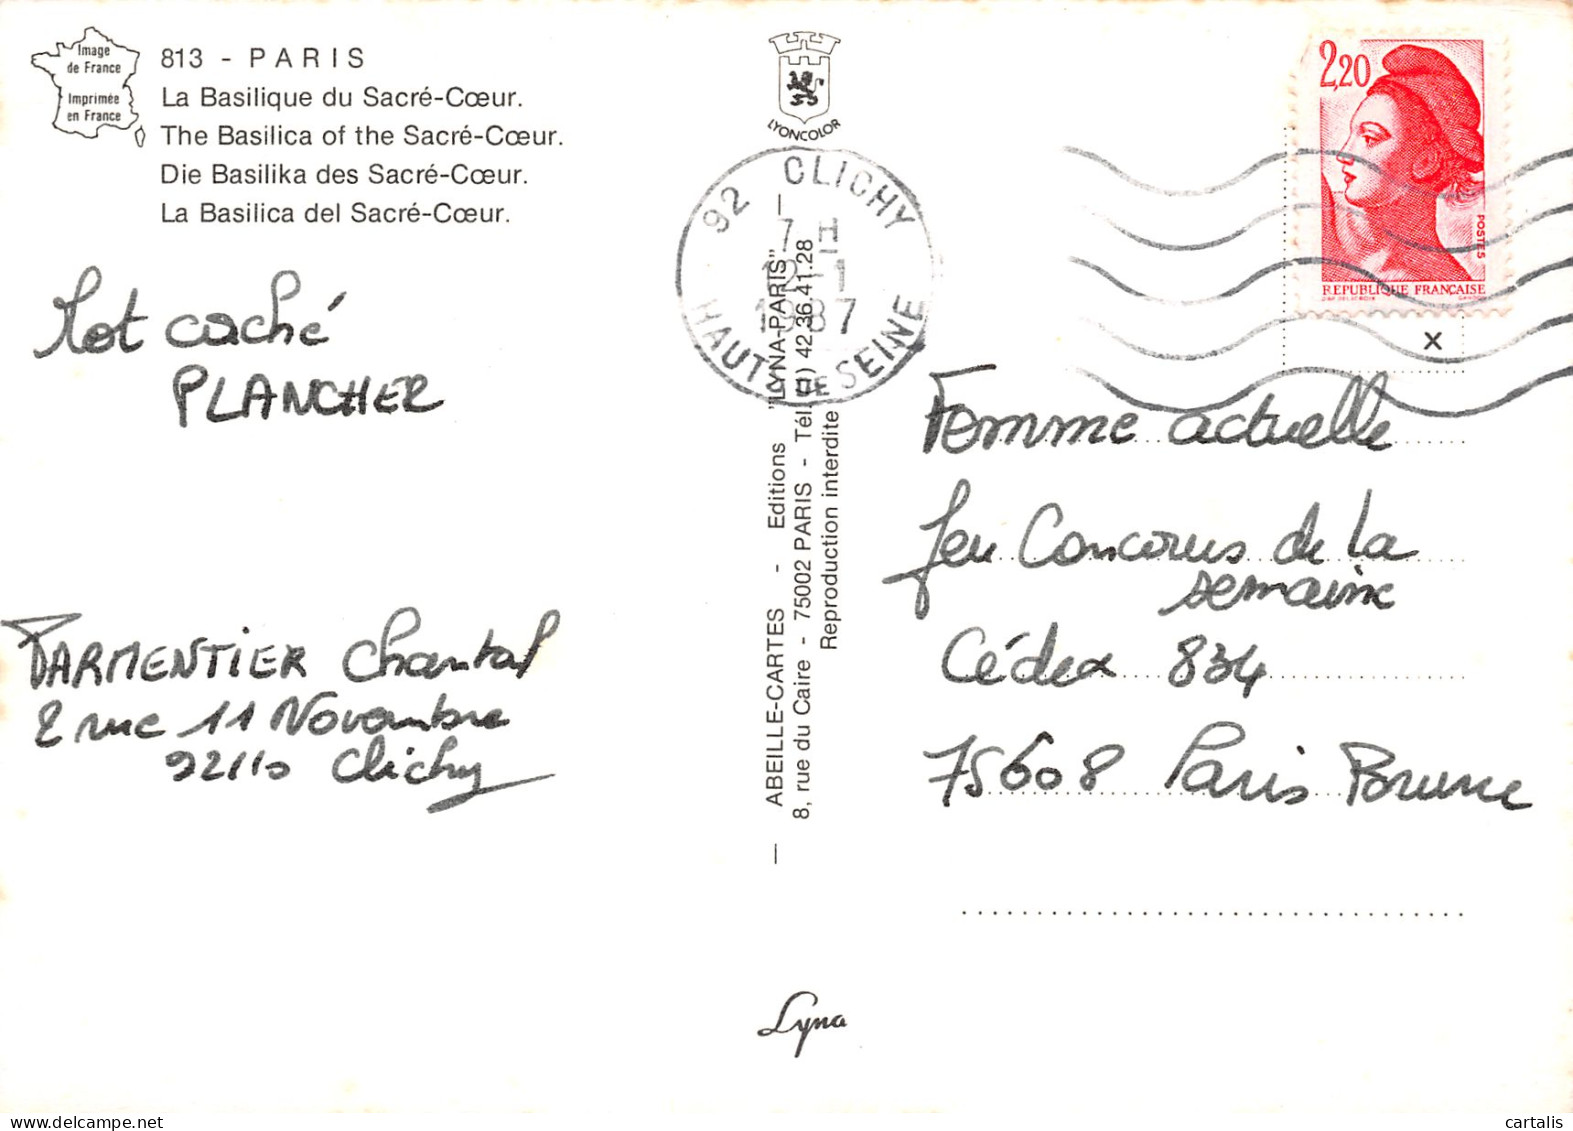 Image
de France
Imprimée
en France
813 - PARIS
La Basilique du Sacré-Cœur.
The Basilica of the Sacré-Cœur.
Die Basilika des Sacré-Cœur.
La Basilica del Sacré-Cœur.
Mot caché
PLANCHER
PARMENTIER Chantal
2 rue 11 Novembre
92110 Clichy
LYONCOLOR
92 CLICHY
7 H
12-1
1987
HAUTS DE SEINE
— ABEILLE-CARTES - Editions "LYNA-PARIS" —
8, rue du Caire - 75002 PARIS - Tél. (1) 42.36.41.28
Reproduction interdite
Lyna
2,20
POSTES
REPUBLIQUE FRANÇAISE
x
Femme actuelle
Jeu Concours de la
semaine
Cédex 834
75608 Paris Brune
cartalis